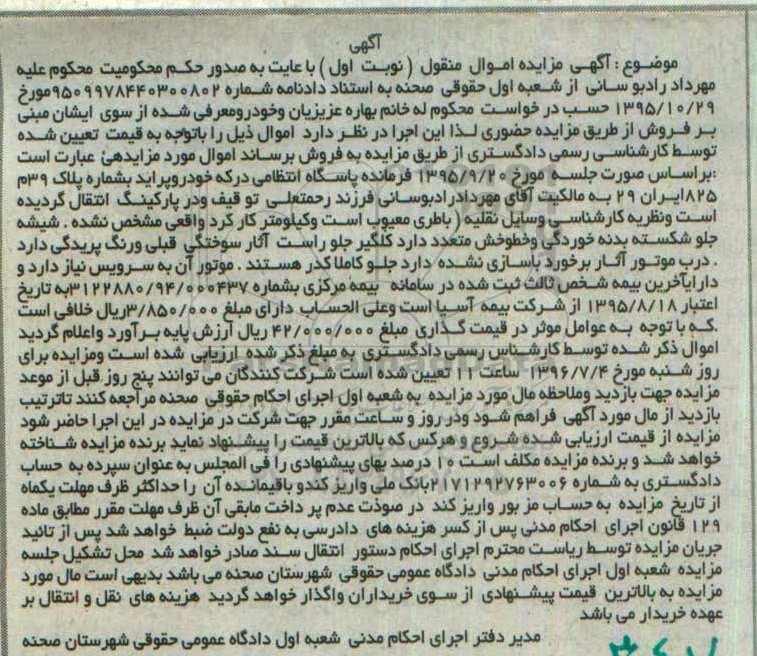 آگهی
موضوع : آگهی مزایده اموال منقول ( نوبت اول ) با عایت به صدور حکم محکومیت محکوم علیه
مهرداد رادبو سانی از شعبه اول حقوقی صحنه به استناد دادنامه شماره ۹۵۰۹۹۷۸۴۴۰۳۰۰۸۰۲مورخ
۱۳۹۵/۱۰/۲۹ حسب در خواست محکوم له خانم بهاره عزیزیان وخودرومعرفی شده از سوی ایشان مبنی
بر فروش از طریق مزایده حضوری لذا این اجرا در نظر دارد اموال ذیل را باتوجه به قیمت تعیین شده
توسط کارشناسی رسمی دادگستری از طریق مزایده به فروش برساند اموال مورد مزایدهئ عبارت است
:براساس صورت جلسه مورخ ۱۳۹۵/۹/۲۰ فرمانده پاسگاه انتظامی درکه خودروپراید بشماره پلاک ۳۹م
۸۲۵ایران ۲۹ به مالکیت آقای مهردادرادبوسانی فرزند رحمتعلی تو قیف ودر پارکینگ انتقال گردیده
است ونظریه کارشناسی وسایل نقلیه ( باطری معیوب است وکیلومتر کار کرد واقعی مشخص نشده . شیشه
جلو شکسته بدنه خوردگی وخطوخش متعدد دارد کلگیر جلو راست آثار سوختگی قبلی ورنگ پریدگی دارد
. درب موتور آثار برخورد باسازی نشده دارد جلو کاملا کدر هستند . موتور آن به سرویس نیاز دارد و
دارایآخرین بیمه شخص ثالث ثبت شده در سامانه بیمه مرکزی بشماره ۳۱۲۲۸۸۰/۹۴/۰۰۰۴۳۷به تاریخ
اعتبار ۱۳۹۵/۸/۱۸ از شرکت بیمه آسیا است وعلی الحساب دارای مبلغ ۳/۸۵۰/۰۰۰ریال خلافی است
.که با توجه به عوامل موثر در قیمت گذاری مبلغ ۴۲/۰۰۰/۰۰۰ ریال آرزش پایه برآورد واعلام گردید
اموال ذکر شده توسط کارشناس رسمی دادگستری به مبلغ ذکر شده ارزیابی شده است ومزایده برای
روز شنبه مورخ ۱۳۹۶/۷/۴ ساعت ۱۱ تعیین شده است شرکت کنندگان می توانند پنج روز قبل از موعد
مزایده جهت بازدید وملاحظه مال مورد مزایده به شعبه اول اجرای احکام حقوقی صحنه مراجعه کنند تاترتیب
بازدید از مال مورد آگهی فراهم شود ودر روز و ساعت مقرر جهت شرکت در مزایده در این اجرا حاضر شود
مزایده از قیمت ارزیابی شده شروع و هرکس که بالاترین قیمت را پیشنهاد نماید برنده مزایده شناخته
خواهد شد و برنده مزایده مکلف است ۱۰ درصد بهای پیشنهادی را فی المجلس به عنوان سپرده به حساب
دادگستری به شماره ۲۱۷۱۲۹۲۷۶۳۰۰۶بانک ملی واریز کندو باقیمانده آن را حداکثر ظرف مهلت یکماه
از تاریخ مزایده به حساب مز بور واریز کند در صوذت عدم پر داخت مابقی آن ظرف مهلت مقرر مطابق ماده
۱۲۹ قانون اجرای احکام مدنی پس از کسر هزینه های دادرسی به نفع دولت ضبط خواهد شد پس از تائید
جریان مزایده توسط ریاست محترم اجرای احکام دستور انتقال سند صادر خواهد شد محل تشکیل جلسه
مزایده شعبه اول اجرای احکام مدنی دادگاه عمومی حقوقی شهرستان صحنه می باشد بدیهی است مال مورد
مزایده به بالاترین قیمت پیشنهادی از سوی خریداران واگذار خواهد گردید هزینه های نقل و انتقال بر
عهده خریدار می باشد
مدیر دفتر اجرای احکام مدنی شعبه اول دادگاه عمومی حقوقی شهرستان صحنه